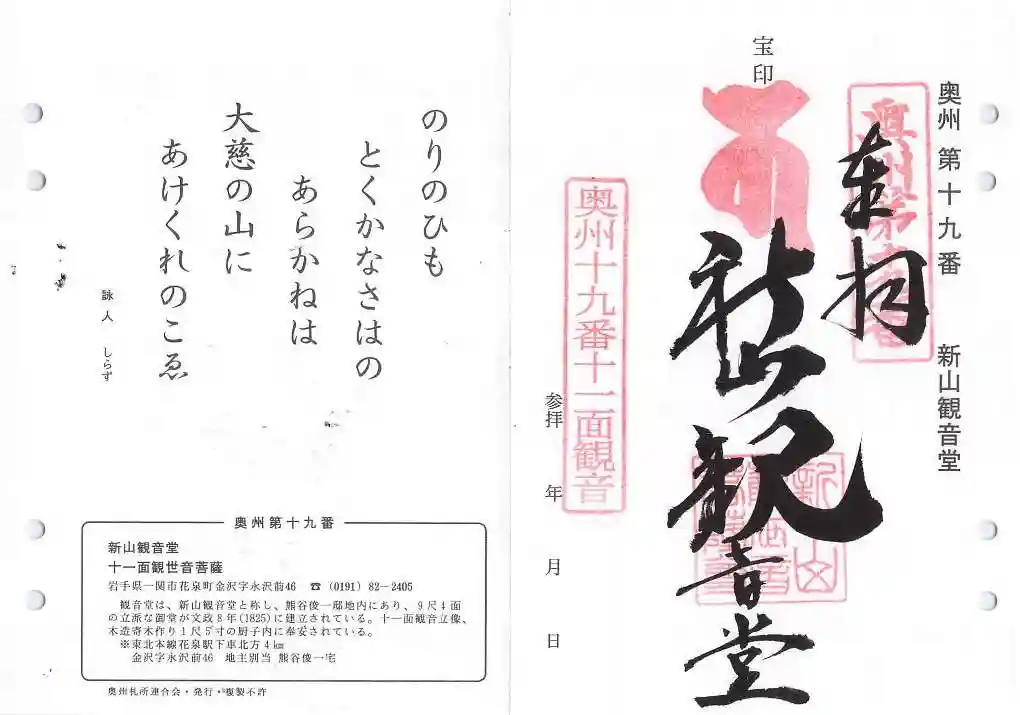 宝印
奥州 第十九番 新山観音堂
奉拝
新山観音堂
奥州十九番十一面観音
参拝 年 月 日
のりのひも
とくかなさはの
あらかねは
大慈の山に
あけくれのこゑ
詠人 しらず
奥州第十九番
新山観音堂
十一面観世音菩薩
岩手県一関市花泉町金沢字永沢前46 ☎(0191)82-2405
観音堂は、新山観音堂と称し、熊谷俊一邸地内にあり、9尺4面
の立派な御堂が文政8年(1825)に建立されている。十一面観音立像、
木造寄木作り1尺5寸の厨子内に奉安されている。
※東北本線花泉駅下車北方4㎞
金沢字永沢前46 地主別当 熊谷俊一宅
奥州札所連合会・発行・複製不許